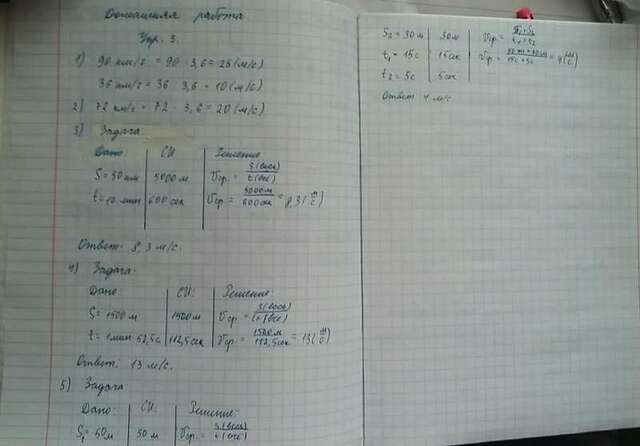 Домашняя работа
Упр. 3.
1) 90 км/ч = 90 : 3,6 = 25 (м/с)
36 км/ч = 36 : 3,6 = 10 (м/с)
2) 72 км/ч = 72 : 3,6 = 20 (м/с)
3) Задача.
Дано: СИ Решение
S = 30 км 5000 м Vср. = S(весь)/t(всё)
t = 10 мин 600 сек Vср. = 5000 м/600 сек = 8,3 (м/с)
Ответ: 8,3 м/с.
4) Задача.
Дано: СИ: Решение:
S = 1500 м 1500 м Vср. = S(весь)/t(всё)
t = 1 мин 52,5 с 112,5 сек Vср. = 1500 м/112,5 сек = 13 (м/с)
Ответ: 13 м/с.
5) Задача
Дано: СИ: Решение:
S₁ = 50 м 50 м Vср. = S(весь)/t(всё)
S₂ = 30 м 30 м Vср. = S₁+S₂/t₁+t₂
t₁ = 15 с 15 сек Vср. = 50 м + 30 м/15 с + 5 с = 4 (м/с)
t₂ = 5 с 5 сек
Ответ 4 м/с.